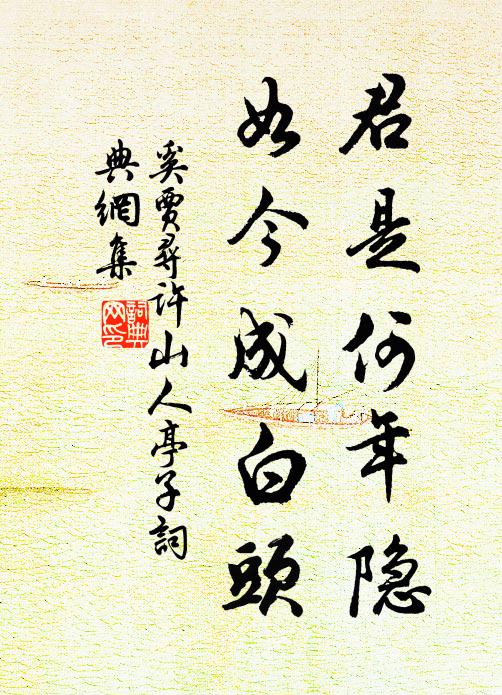 君是何年隐
如今成白頭
奚賈尋許山人亭子詞
典網集
詞典
网印